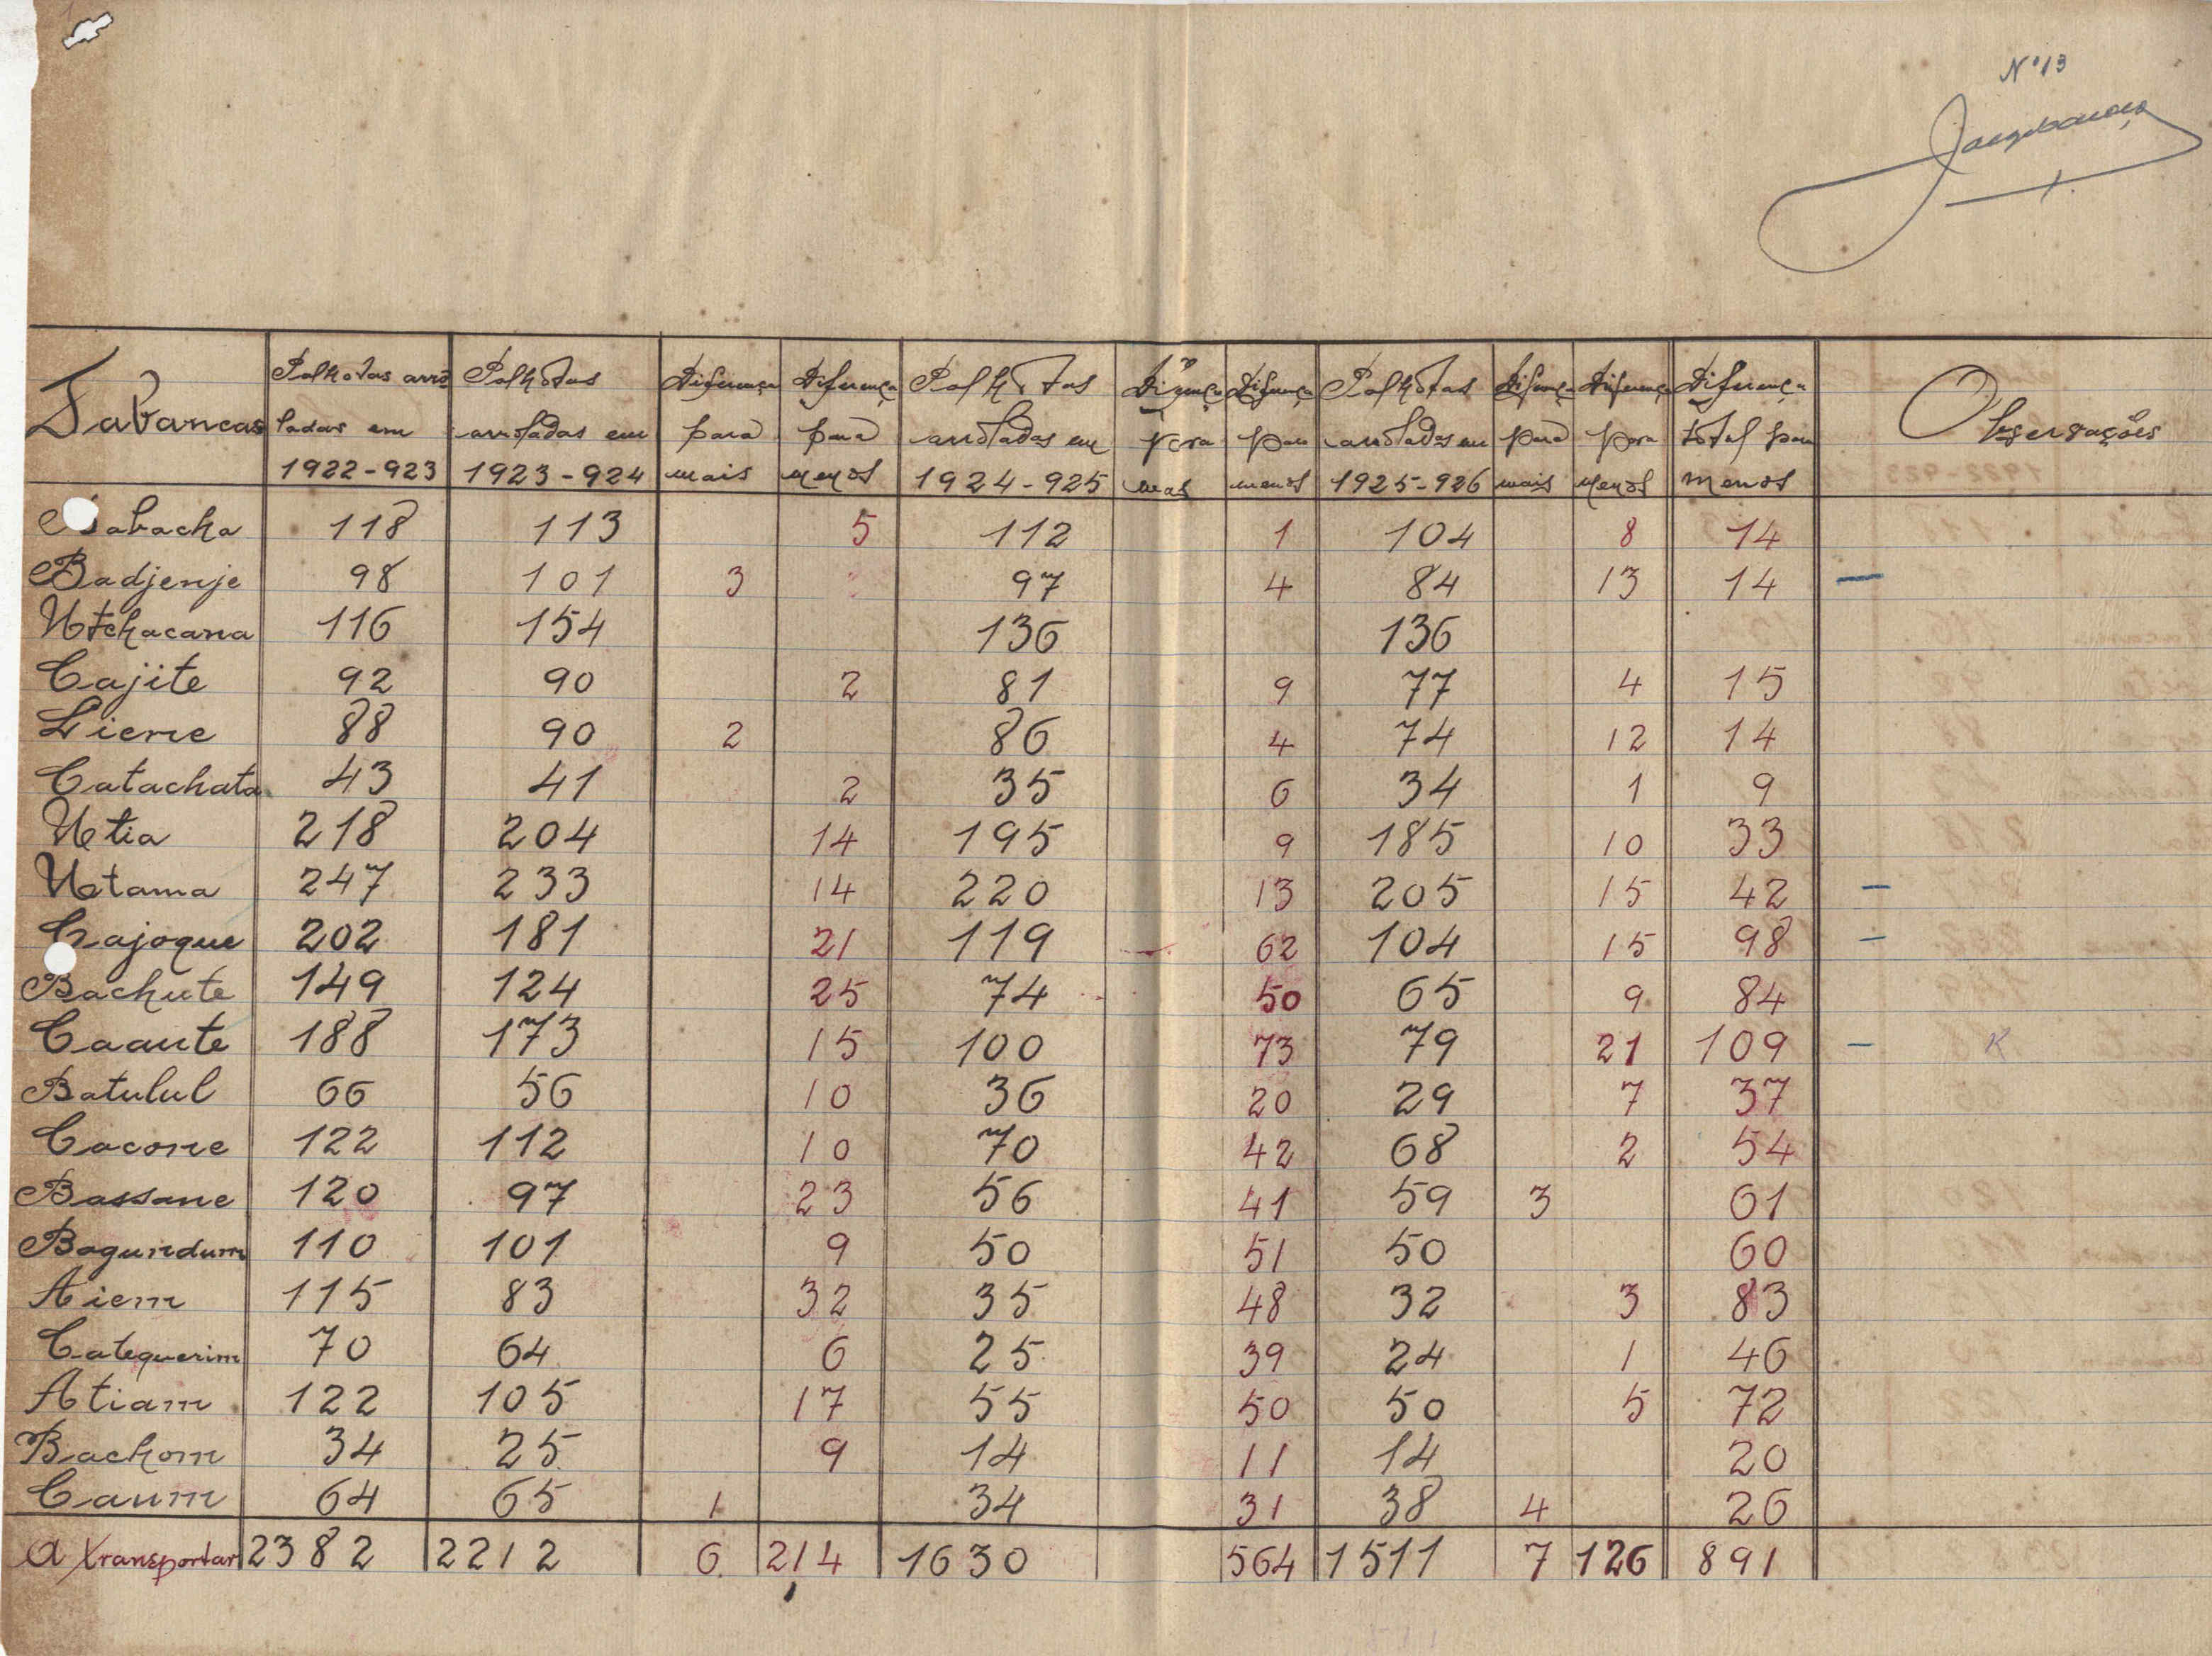 Nº 13
Tabancas | Palhotas arro ladas em 1922-923 | Palhotas arroladas em 1923-924 | Diferença para mais | Diferença para menos | Palhotas arroladas em 1924-925 | Diferença para mais | Diferença para menos | Palhotas arroladas em 1925-926 | Diferença para mais | Diferença para menos | Diferença total para menos | Observações
Babacha 118 113 5 112 1 104 8 14
Badjenje 98 101 3 97 4 84 13 14 —
Utchacana 116 154 136 136
Cajite 92 90 2 81 9 77 4 15
Liene 88 90 2 86 4 74 12 14
Catachata 43 41 2 35 6 34 1 9
Utia 218 204 14 195 9 185 10 33
Utama 247 233 14 220 13 205 15 42 —
Cajoque 202 181 21 119 62 104 15 98 —
Bachute 149 124 25 74 50 65 9 84
Caaute 188 173 15 100 73 79 21 109 —
Batulul 66 56 10 36 20 29 7 37
Cacone 122 112 10 70 42 68 2 54
Bassane 120 97 23 56 41 59 3 61
Bagundum 110 101 9 50 51 50 60
Aiem 115 83 32 35 48 32 3 83
Catequerim 70 64 6 25 39 24 1 46
Atiam 122 105 17 55 50 50 5 72
Bachom 34 25 9 14 11 14 20
Caum 64 65 1 34 31 38 4 26
A transportar 2382 2212 6 214 1630 564 1511 7 126 891